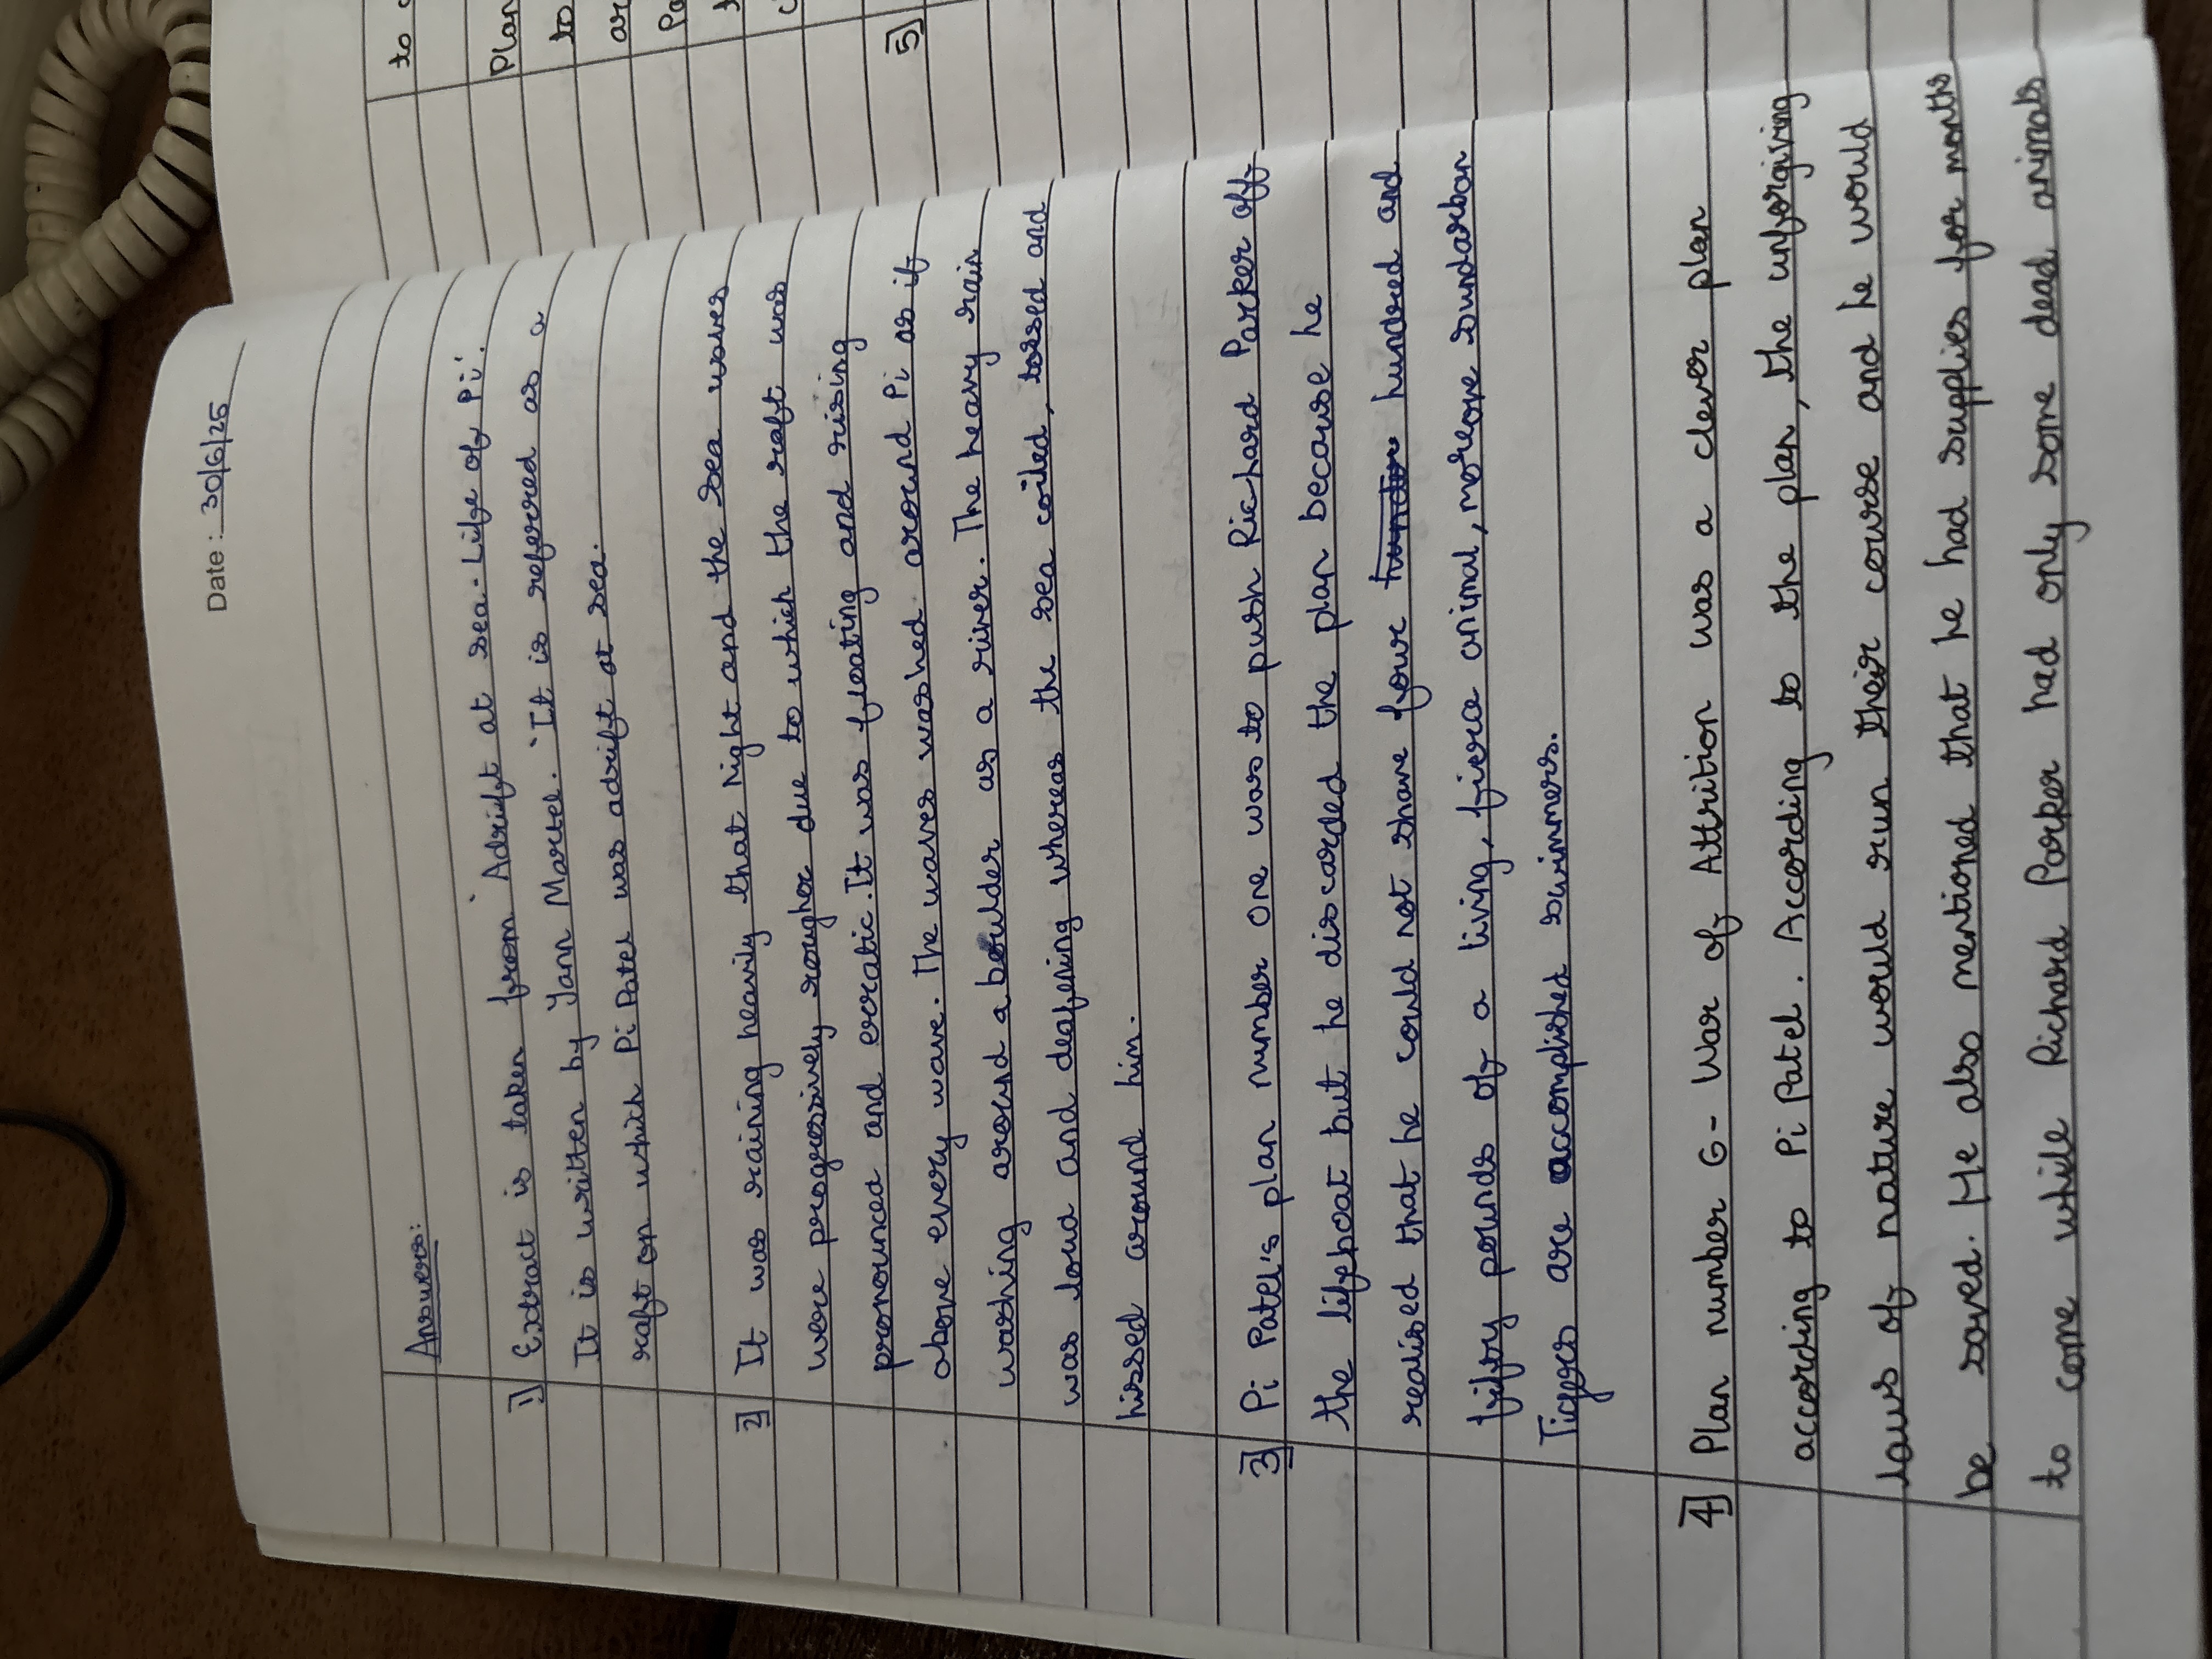 Date: 30/6/25
Answers:
1) Extract is taken from 'Adrift at sea - Life of Pi'.
It is written by Yann Martel. 'It is referred as a
raft on which Pi Patel was adrift at sea.
2] It was raining heavily that night and the sea waves
were progressively rougher due to which the raft was
pronounced and erratic. It was floating and rising
above every wave. The waves washed around Pi as if
washing around a boulder as a river. The heavy rain
was loud and deafening whereas the sea coiled, tossed and
hissed around him.
3] Pi Patel's plan number one was to push Richard Parker off
the lifeboat but he discarded the plan because he
realised that he could not shave four hundred and
fifty pounds of a living, fierce animal, moreone sundarban
Tigers are accomplished swimmers.
4] Plan number 6- War of Attrition was a clever plan
according to Pi Patel. According to the plan, the unforgiving
laws of nature would run their course and he would
be saved. He also mentioned that he had supplies for months
to come while Richard Parker had only some dead animals
to
Plan
to
ar
Pa
5]